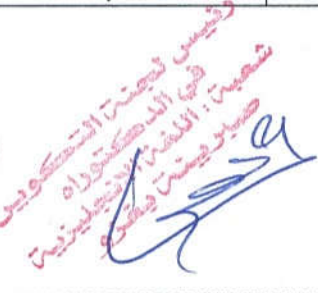 رئيس لجنة التكوين
في الدكتوراه
شعبة: اللغة الإنجليزية
صابرينة